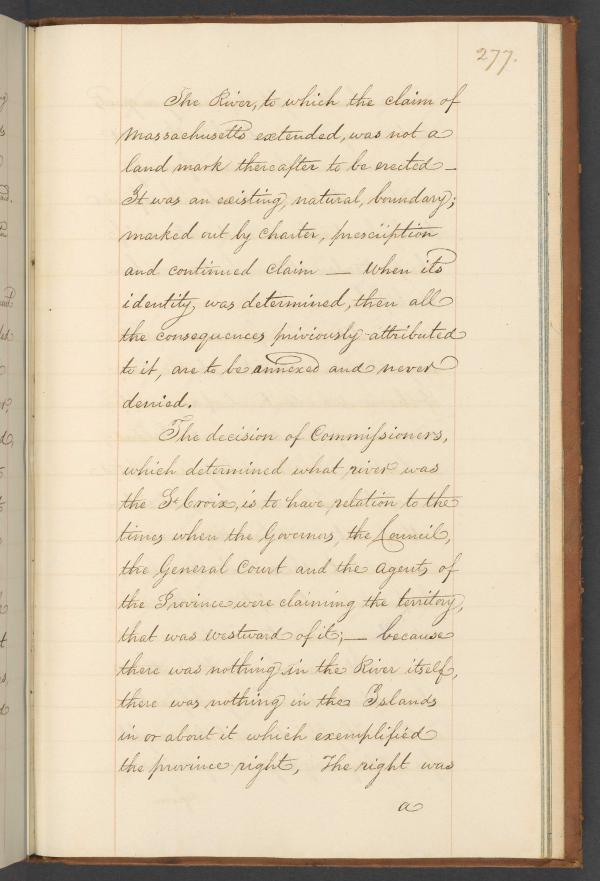 277.
The River, to which the claim of
Massachusetts extended, was not a
land mark thereafter to be erected _
It was an existing, natural, boundary;
marked out by charter, prescription
and continued claim — When its
identity, was determined, then all
the consequences priviously attributed
to it, are to be annexed and never
denied.
The decision of Commissioners,
which determined what river was
the St Croix, is to have relation to the
times when the Governors, the Council,
the General Court and the agents of
the Province were claiming the territory,
that was westward of it; — because
there was nothing in the River itself,
there was nothing in the Islands
in or about it which exemplified
the province right, The right was
a